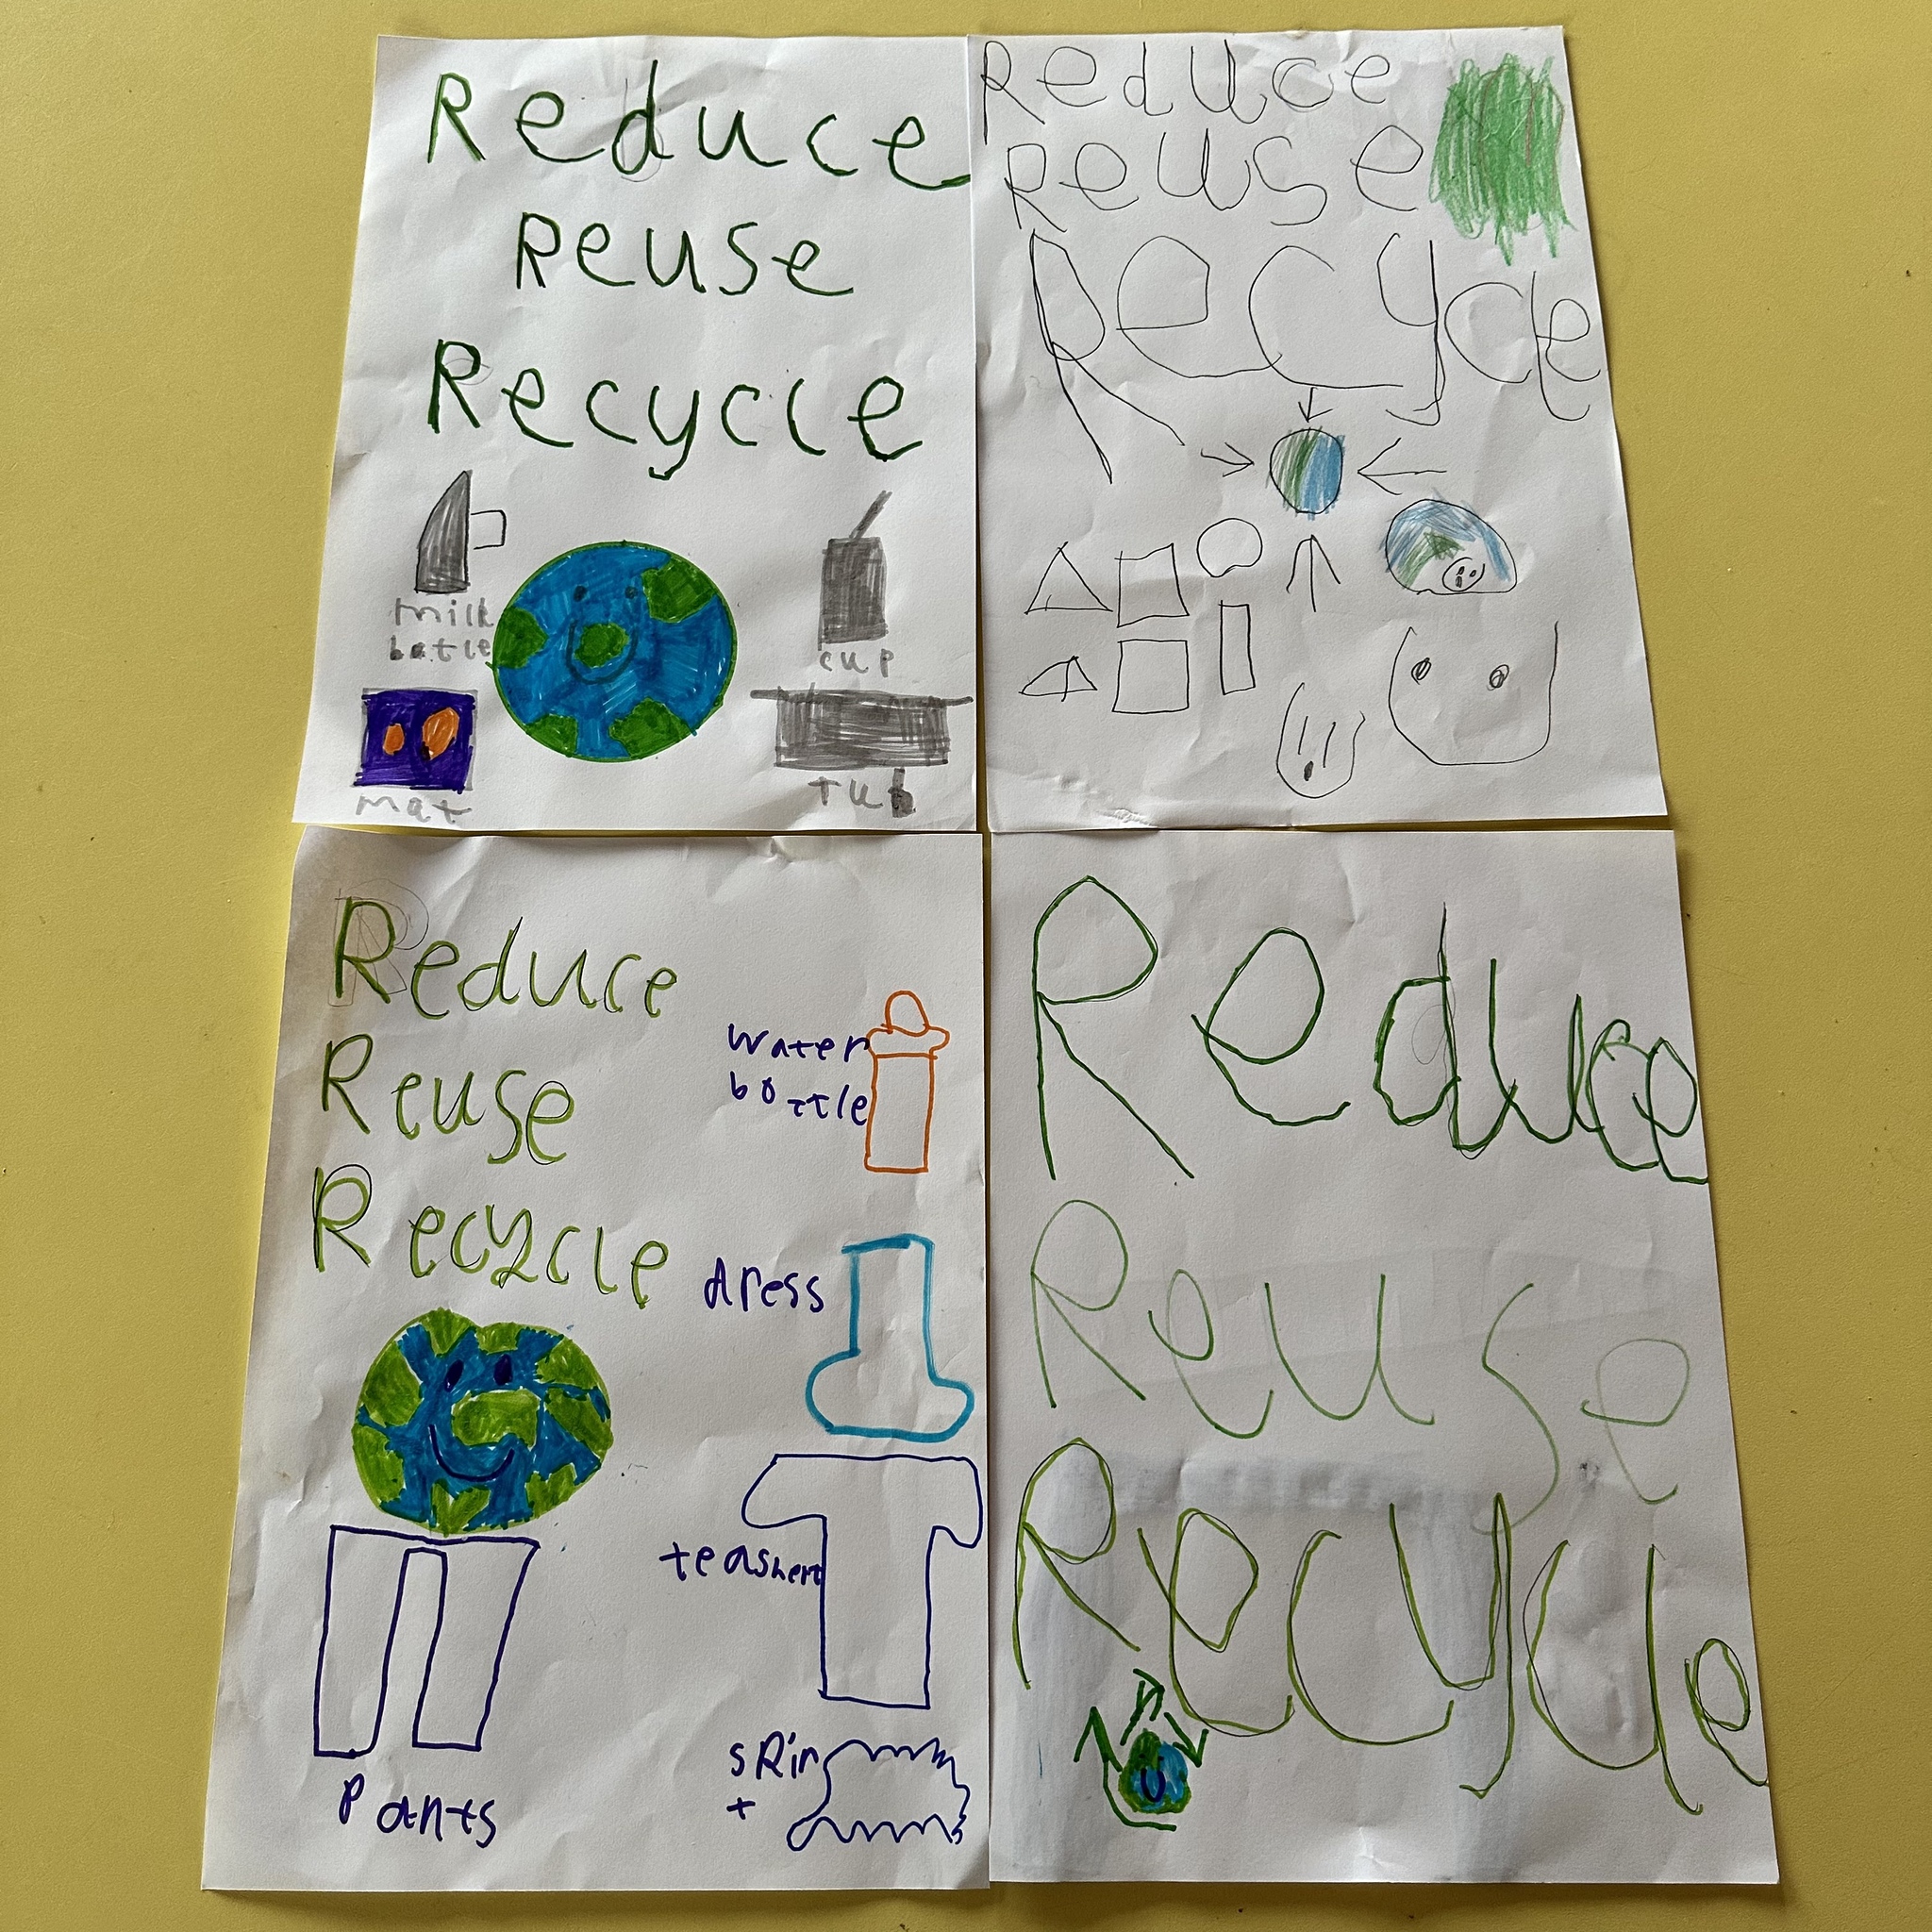 Reduce
Reuse
Recycle
milk
botle
cup
mat
tub
Reduce
Reuse
Recycle
Reduce
Reuse
Recycle
water
bottle
dress
teashert
Pants
skir
t
Reduce
Reuse
Recycle